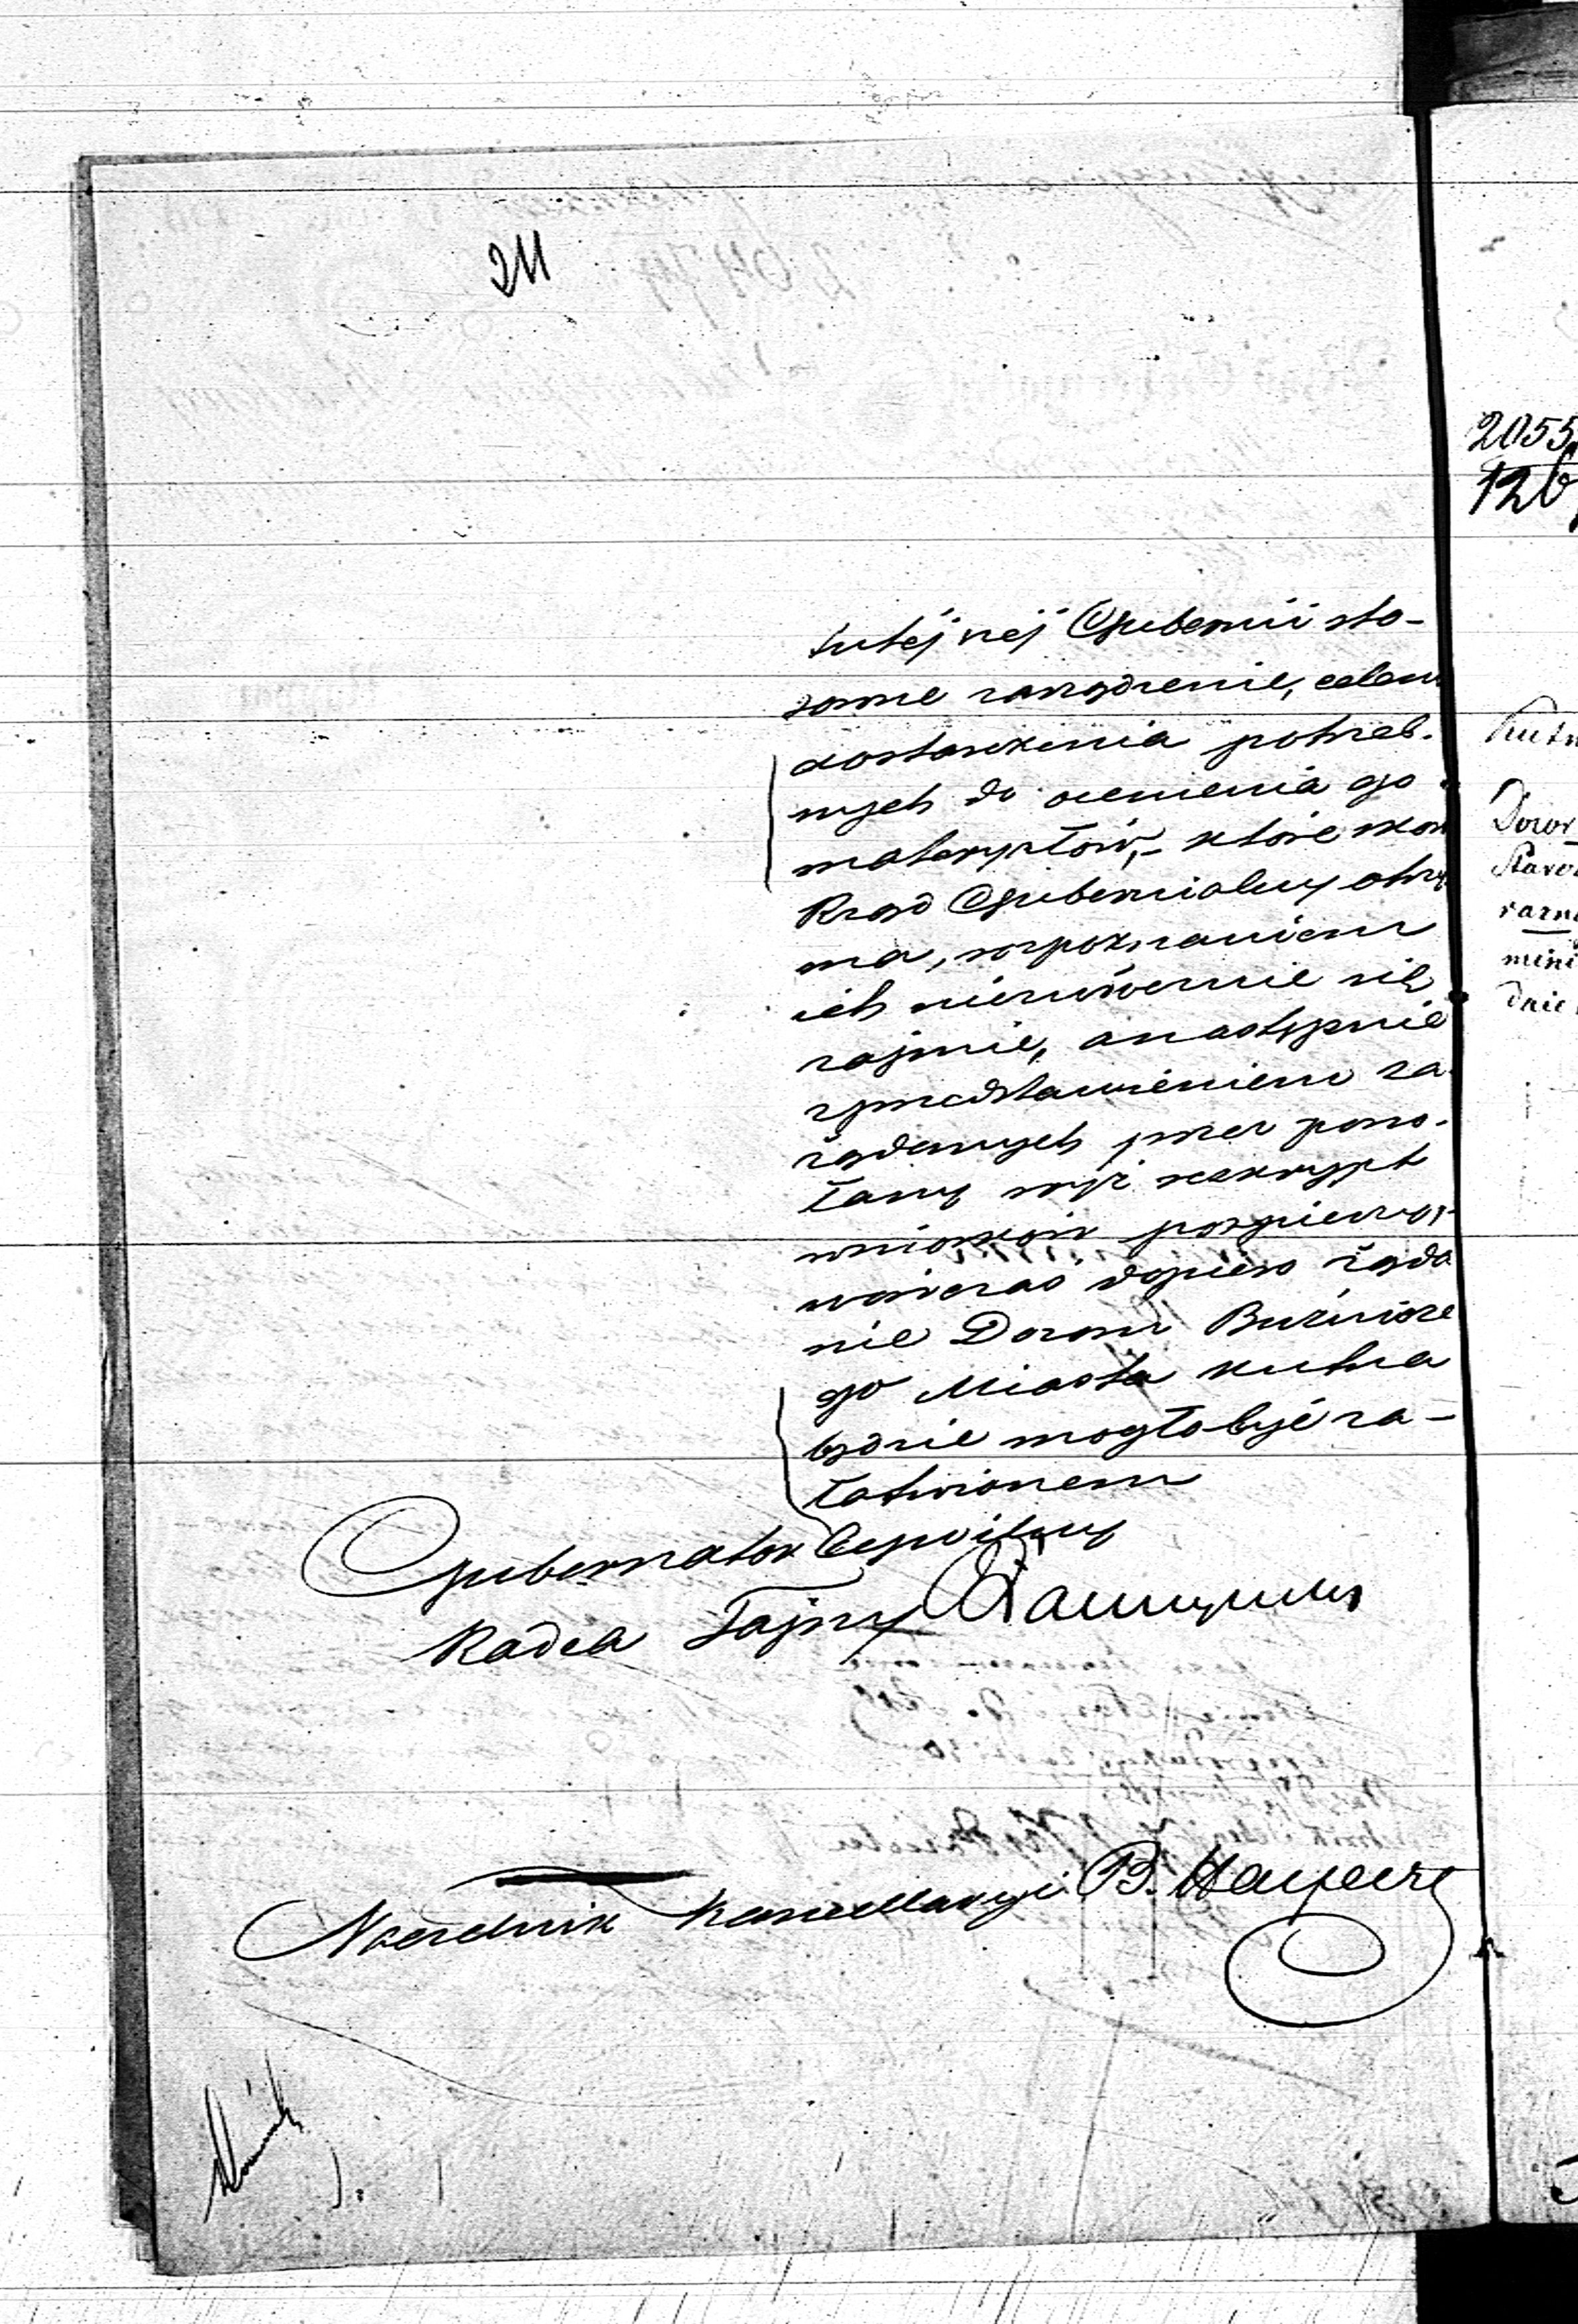 211
tutéjszéj Gubernii sto-
sowne rozrządzenie, celem
dostarczenia potrzeb-
nych do ocenienia go
materyałów, – które skoro
Rząd Gubernialny otrzy
ma, rozpoznaniem
ich niezwłocznie się
zajmie, a następnie
z przedstawieniem za
żądanych przez powo-
łany wyż reskrypt
wniosków pospieszy,
wówczas dopiero żąda
nie Dozoru Bóżnicze
go Miasta Kutna
będzie mogło być za-
łatwionem
Gubernator Cywilny
Radca Tajny
Naczelnik Kancellaryi B.
2055
126
Kutn
Dozor
mini
dnie